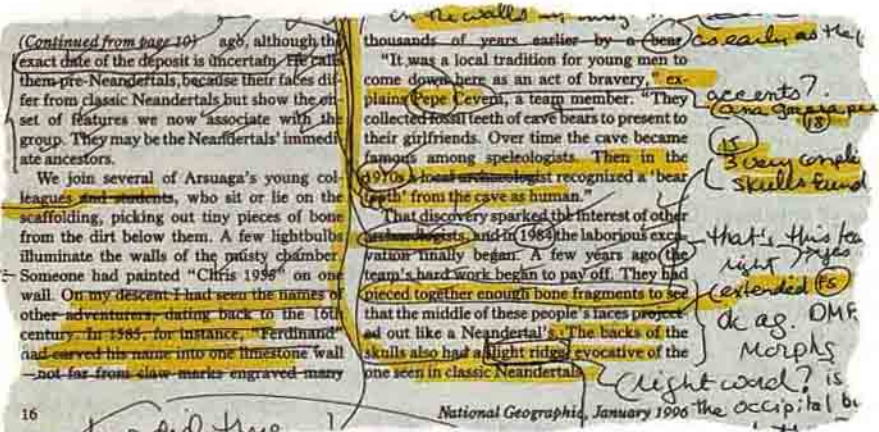 in the walls
(Continued from page 10) ago, although the
exact date of the deposit is uncertain. He calls
them pre-Neandertals, because their faces dif-
fer from classic Neandertals but show the on-
set of features we now associate with the
group. They may be the Neandertals' immedi
ate ancestors.
We join several of Arsuaga's young col-
leagues and students, who sit or lie on the
scaffolding, picking out tiny pieces of bone
from the dirt below them. A few lightbulbs
illuminate the walls of the musty chamber.
Someone had painted "Chris 1958" on one
wall. On my descent I had seen the names of
other adventurers, dating back to the 16th
century. In 1585, for instance, "Ferdinand"
had carved his name into one limestone wall
—not far from claw marks engraved many
thousands of years earlier by a bear
"It was a local tradition for young men to
come down here as an act of bravery," ex-
plains Pepe Cevera, a team member. "They
collected fossil teeth of cave bears to present to
their girlfriends. Over time the cave became
famous among speleologists. Then in the
1970s a local archaeologist recognized a 'bear
tooth' from the cave as human."
That discovery sparked the interest of other
archaeologists, and in 1984 the laborious exca-
vation finally began. A few years ago the
team's hard work began to pay off. They had
pieced together enough bone fragments to see
that the middle of these people's faces project-
ed out like a Neandertal's. The backs of the
skulls also had a slight ridge, evocative of the
one seen in classic Neandertals
as early as the
accents?
18
15
3 very comple
skulls found
that's this
right
yes
extended
ok ag. DMF
Morphs
(right word? is
the occipital b
did
16
National Geographic, January 1996